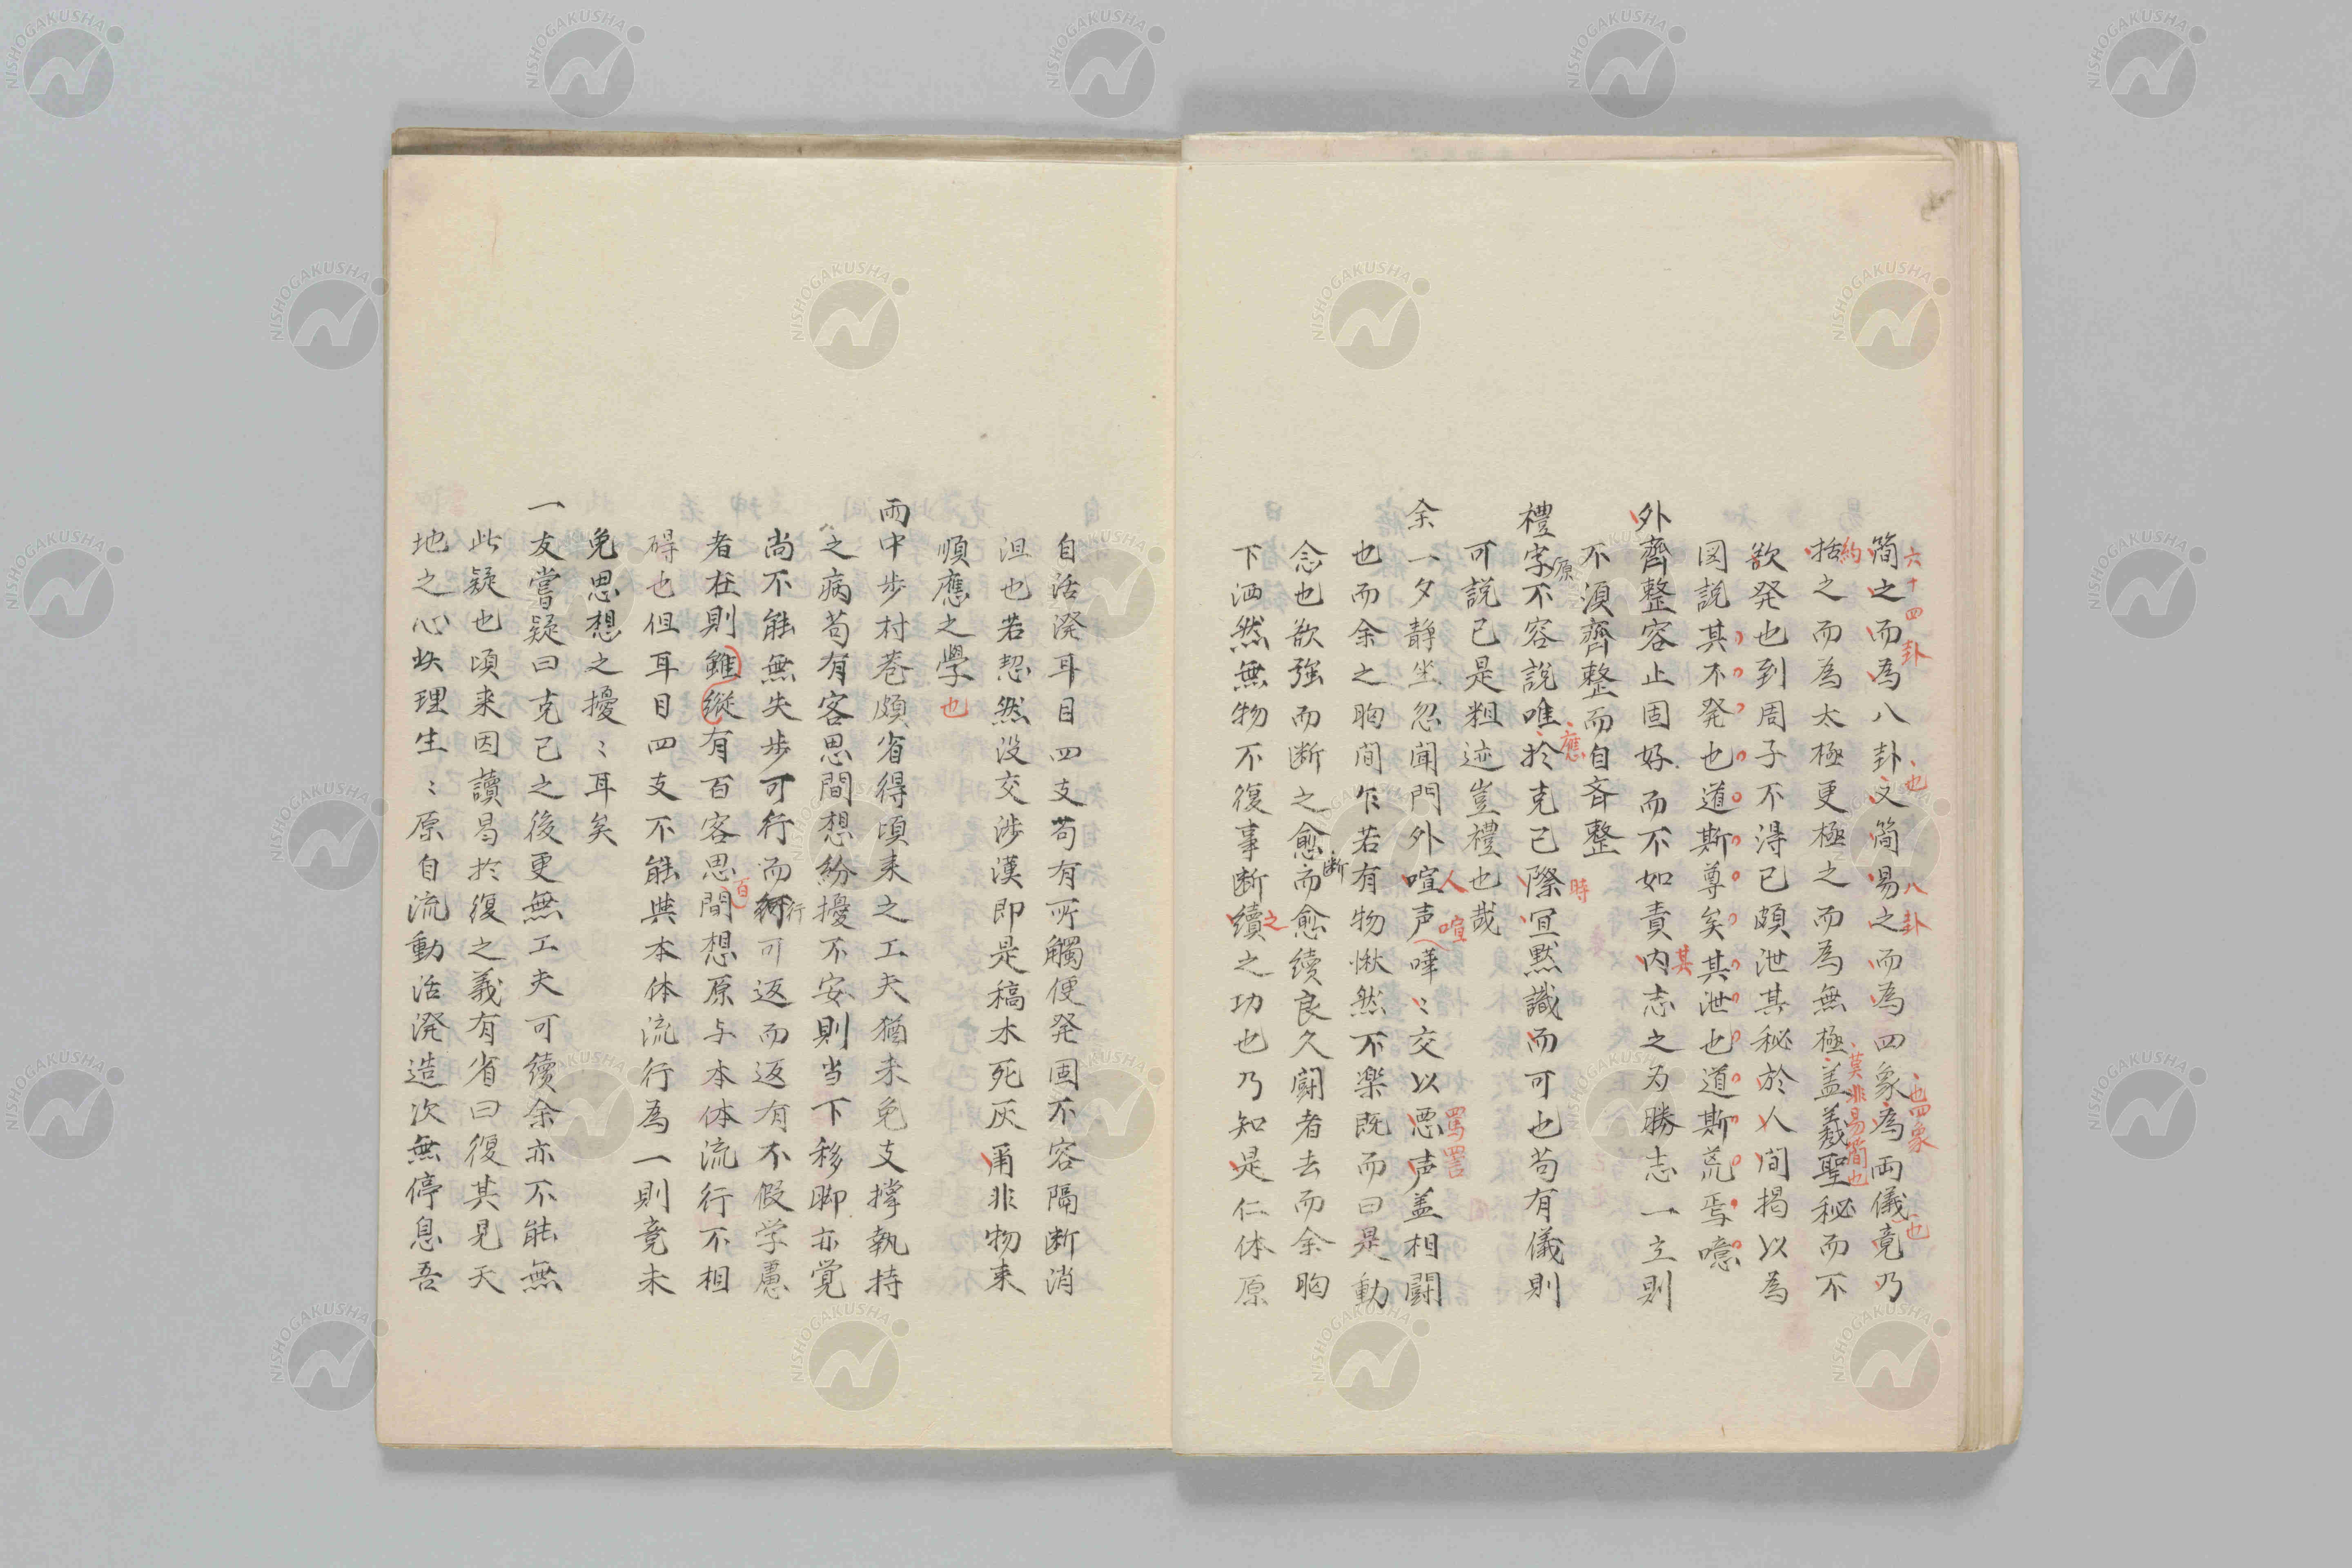 簡之而為八卦又簡易之而為四象為両儀竟乃
六十四卦
也
八卦
也四象
也
括之而為太極更極之而為無極盖羲聖秘而不
約
莫非易簡也
欲発也到周子不得已頗泄其秘於人間掲以為
図説其不発也道斯尊矣其泄也道斯荒焉噫
外齊整容止固好而不如責内志之為勝志一立則
其
不須齊整而自斉整
禮字不容說唯於克己際宜黙識而可也苟有儀則
原
應
時
可説已是粗迹豈禮也哉
余一夕静坐忽聞門外喧声嘩〻交以悪声盖相闘
人
喧
罵詈
也而余之胸間乍若有物愀然不楽既而曰是動
念也欲强而断之愈而愈續良久闘者去而余胸
断
下洒然無物不復事断續之功也乃知是仁体原
之
自活溌耳目四支苟有所觸便発固不容隔断消
沮也若恝然没交渉漢即是稿木死灰甭非物来
順應之學也
雨中歩村巷頗省得頃来之工夫猶未免支撑執持
之病苟有客思間想紛擾不安則当下移脚亦覚
尚不能無失歩可行而可返而返有不假学慮
行
者在則雖縦有百客思間想原与本体流行不相
百
碍也但耳目四支不能與本体流行為一則竟未
免思想之擾〻耳矣
一友嘗疑曰克己之後更無工夫可續余亦不能無
此疑也頃来因讀易於復之義有省曰復其見天
地之心㐫理生〻原自流動活溌造次無停息吾
NISHOGAKUSHA